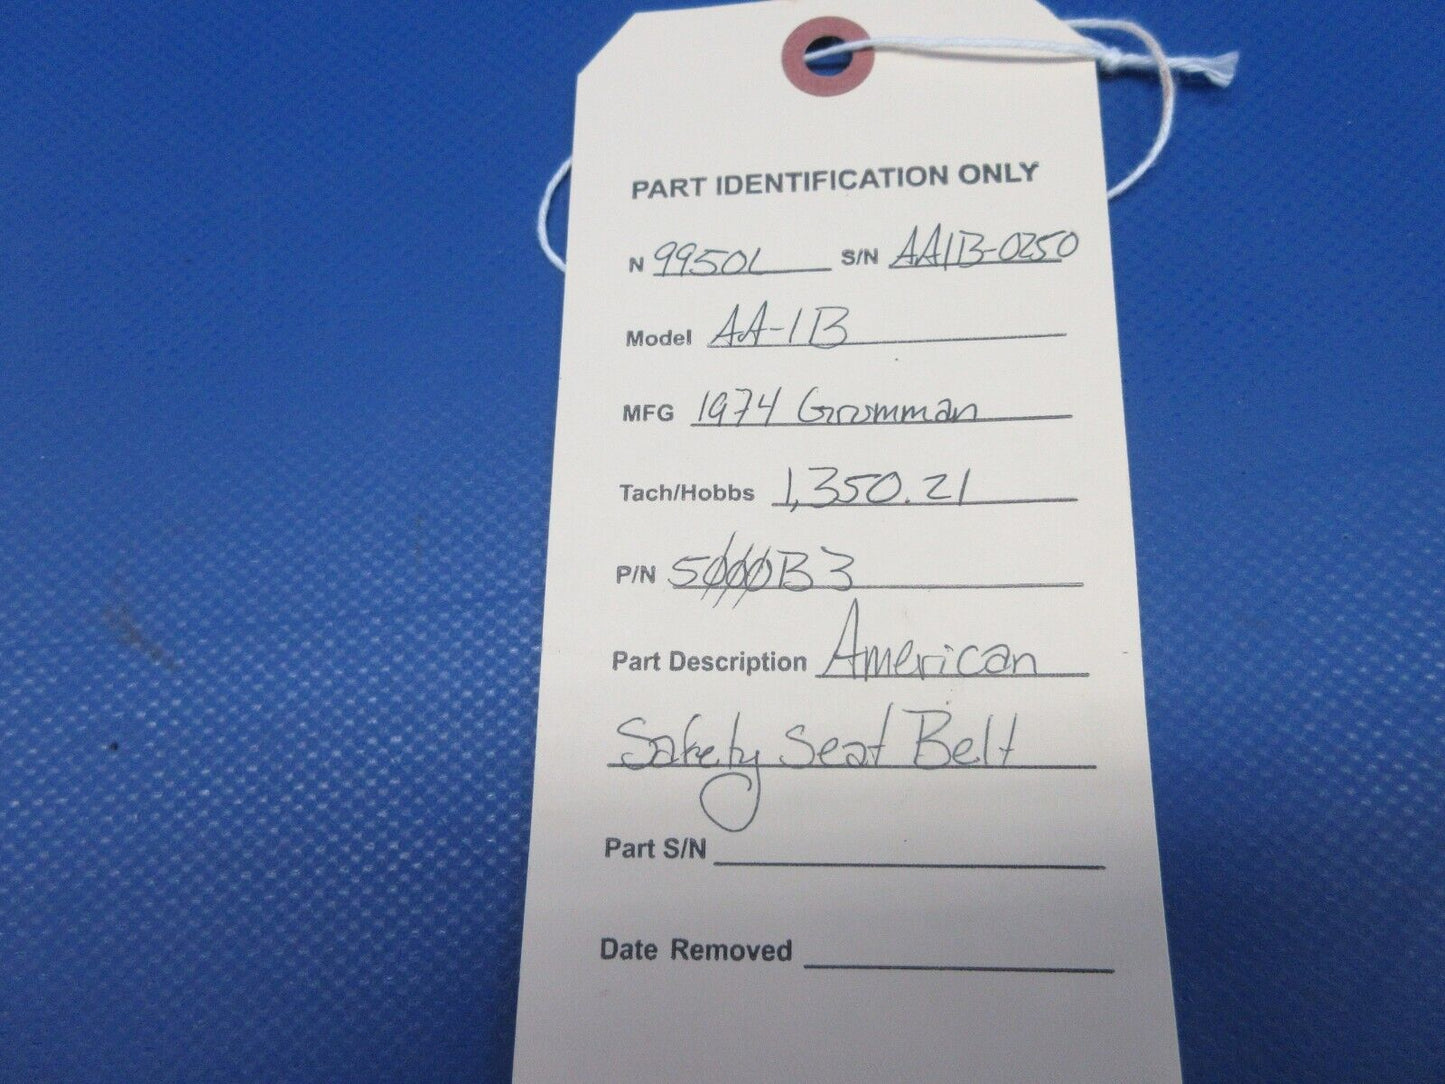 PART IDENTIFICATION ONLY
N 9950L S/N AA1B-0250
Model AA-1B
MFG 1974 Grumman
Tach/Hobbs 1,350.21
P/N 5000B3
Part Description American
Safety Seat Belt
Part S/N
Date Removed